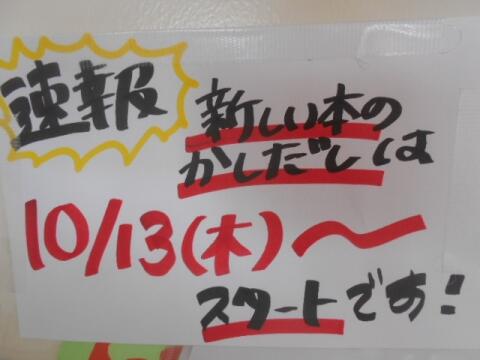 速報
新しい本の
かしだしは
10/13(木)～
スタートです!